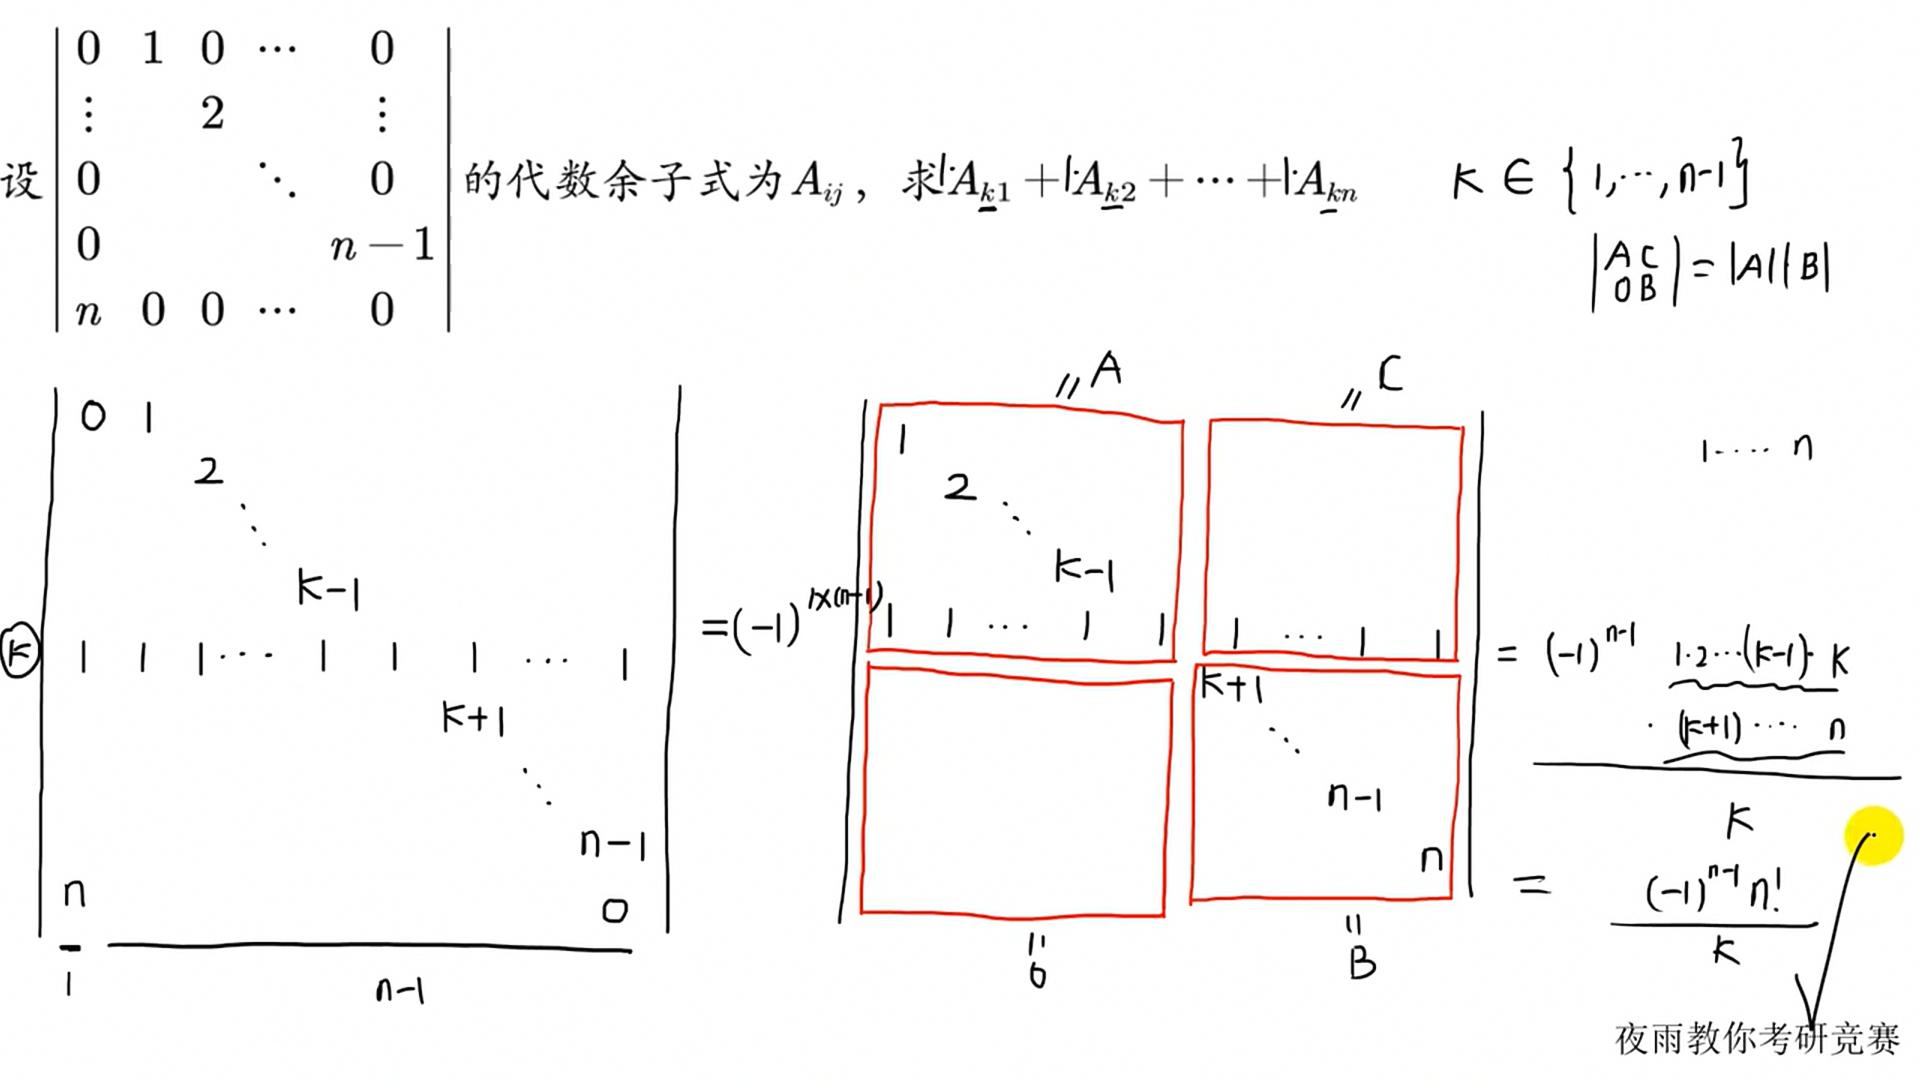 0 1 0 ⋯ 0
⋮ 2 ⋮
设 0 ⋱ 0 的代数余子式为 A_{ij}，求1·A_{k1}+1·A_{k2}+⋯+1·A_{kn} K ∈ {1,⋯,n-1}
0 n-1
n 0 0 ⋯ 0
|A C
0 B| = |A||B|
0 1
2
⋱
K-1
K 1 1 1 ⋯ 1 1 1 ⋯ 1
K+1
⋱
n-1
n 0
1 n-1
= (-1)^{1×(n-1)}
"A "C
1
2
⋱
K-1
1 1 ⋯ 1 1 1 ⋯ 1 1
K+1
⋱
n-1
n
"0 "B
1 ⋯ n
= (-1)^{n-1} 1·2⋯(K-1)· K
· (K+1) ⋯ n
K
= (-1)^{n-1} n!
K
夜雨教你考研竞赛